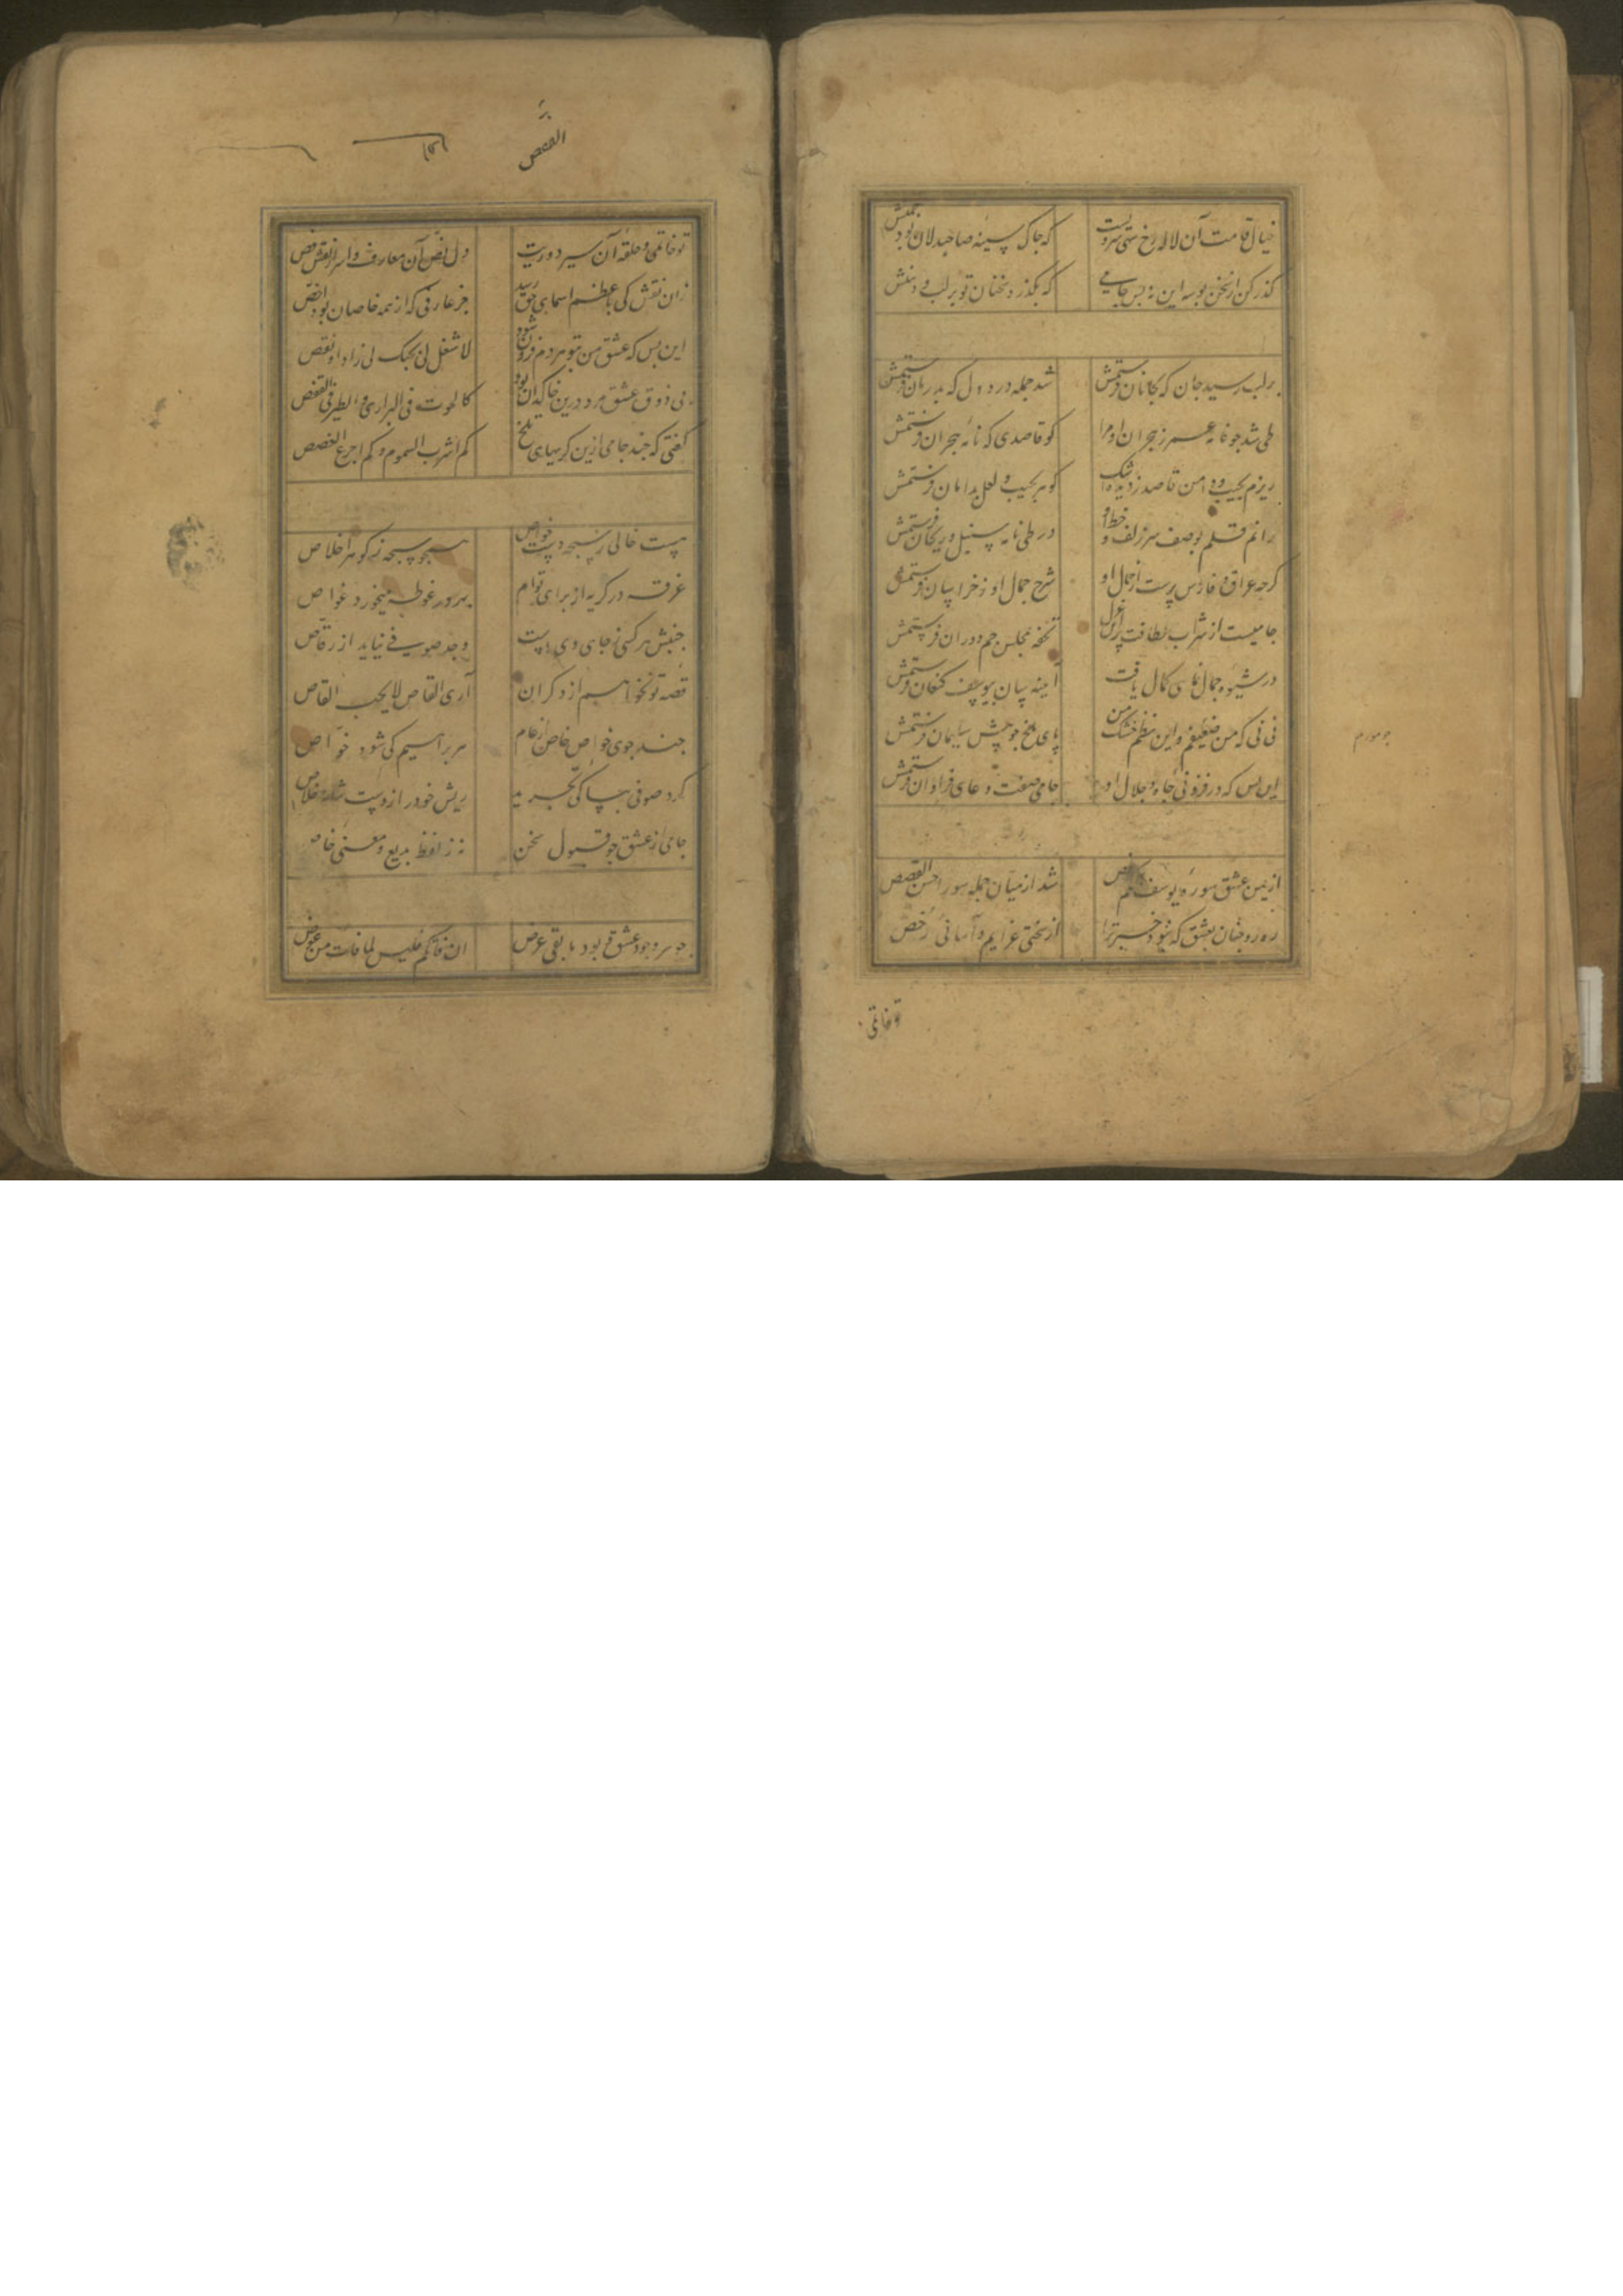 خیال قامت آن لاله رخ سهی سرویست که چاک سینهٔ صاحبدلان بود چمنش
گذر کن از سخن بوسه این نه بس جامی که بگذرد سخنان تو بر لب و دهنش
بر لب رسید جان که بجانان فرستمش شد جمله درد دل که بدرمان فرستمش
طی شد چو نامه عمر ز هجران او مرا کو قاصدی که نامهٔ هجران فرستمش
ریزم بجیب و دامن قاصد ز دیده اشک گوهر بجیب و لعل بدامان فرستمش
رانم قلم بوصف سر زلف و خط او در طی نامه سنبل و ریحان فرستمش
گرچه عراق و فارس پرست از جمال او شرح جمال او ز خراسان فرستمش
جامیست از شراب لطافت پر آن غزل تحفه بمجلس جم دوران فرستمش
در شیوه جمال نمای کمال یافت آیینه سان بیوسف کنعان فرستمش
نی نی که من ضعیفم و این نظم خشک من پای ملخ چو پیش سلیمان فرستمش
چو مورم
این بس که در فزونی جاه و جلال او جامی صفت دعای فراوان فرستمش
از یمن عشق سورهٔ یوسف شد از میان جمله سور احسن القصص
ره رو چنان بعشق که نبود خبر ترا از سختی عزایم و آسانی رخص
تو خاتمی
القصص
تو خاتمی و حلقهٔ آن سیر دوریت دل فص آن معارف و اسرار نقش فص
زان نقش کی باعظم اسمای حق رسد جز عارفی که از همه خاصان بود اخص
این بس که عشق من بتو هر دم فزون شود لا شغل لی بحبک لی زاد او نقص
بی ذوق عشق مرد درین خاکدان بود کالحوت فی البراری والطیر فی القفص
گفتی که چند جامی ازین گریهای تلخ کم اشرب السموم و کم اجرع الغصص
هست خالی ز سبحه دست خواص همچو سبحه ز گوهر اخلاص
غرقه در گریه از برای توام بهر در غوطه میخورد غواص
جنبش هر کسی ز جای وی است وجد صوفی نیاید از رقاص
قصه تو نخواهم از دگران آری القاص لا یحب القاص
چند جوی خواص خاص از عام هر براهیم کی شود خواص
کرد صوفی بپاکی تجرید ریش خود را ز دست شانه خلاص
جامی از عشق جو قبول سخن نه ز لفظ بدیع و معنی خاص
جوهر وجود عشق بود ما بقی عرض ان فاتکم فلیس لما فات من عوض